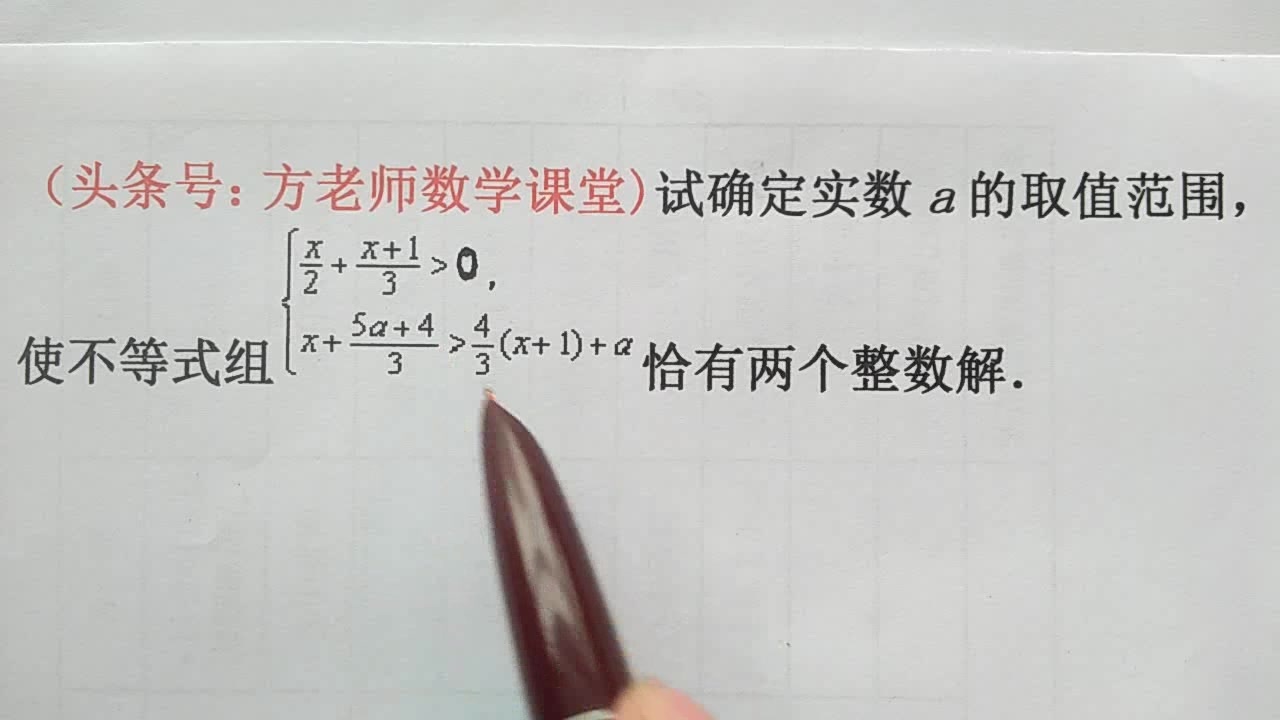 （头条号：方老师数学课堂)试确定实数 a 的取值范围，
使不等式组 { x/2 + (x+1)/3 > 0， x + (5a+4)/3 > 4/3 (x+1) + a 恰有两个整数解．